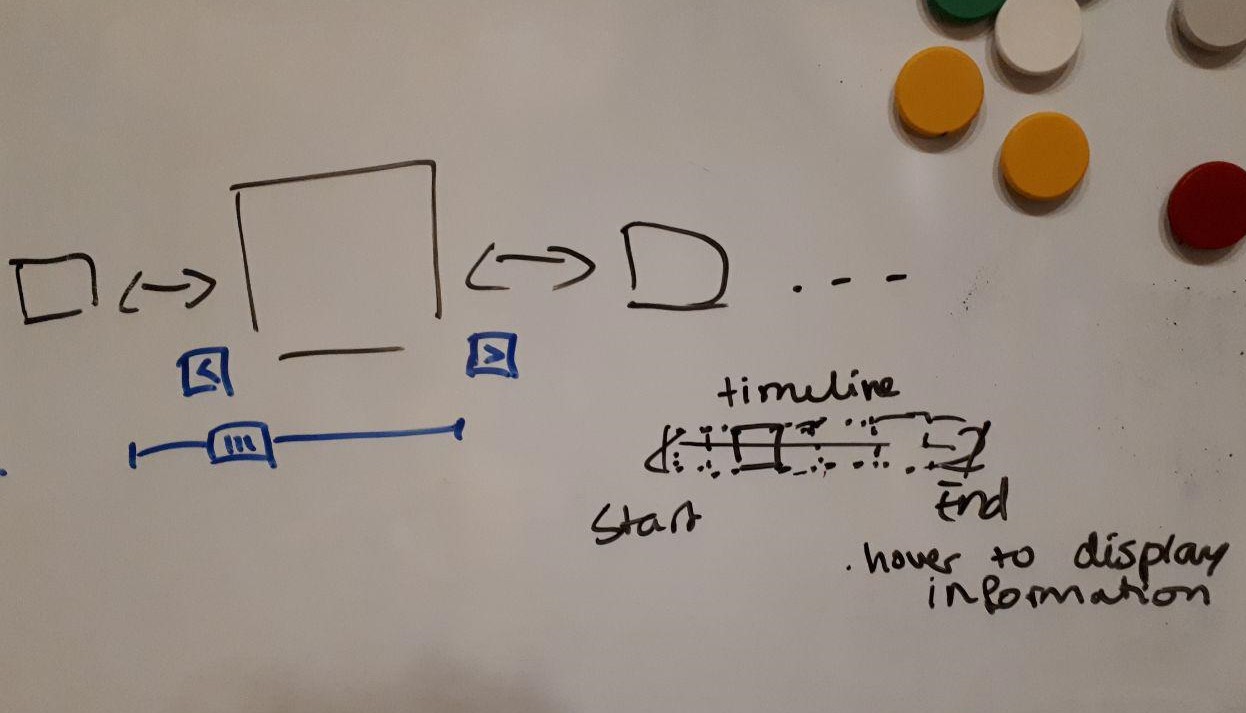 <
>
timeline
Start
End
. hover to display
information